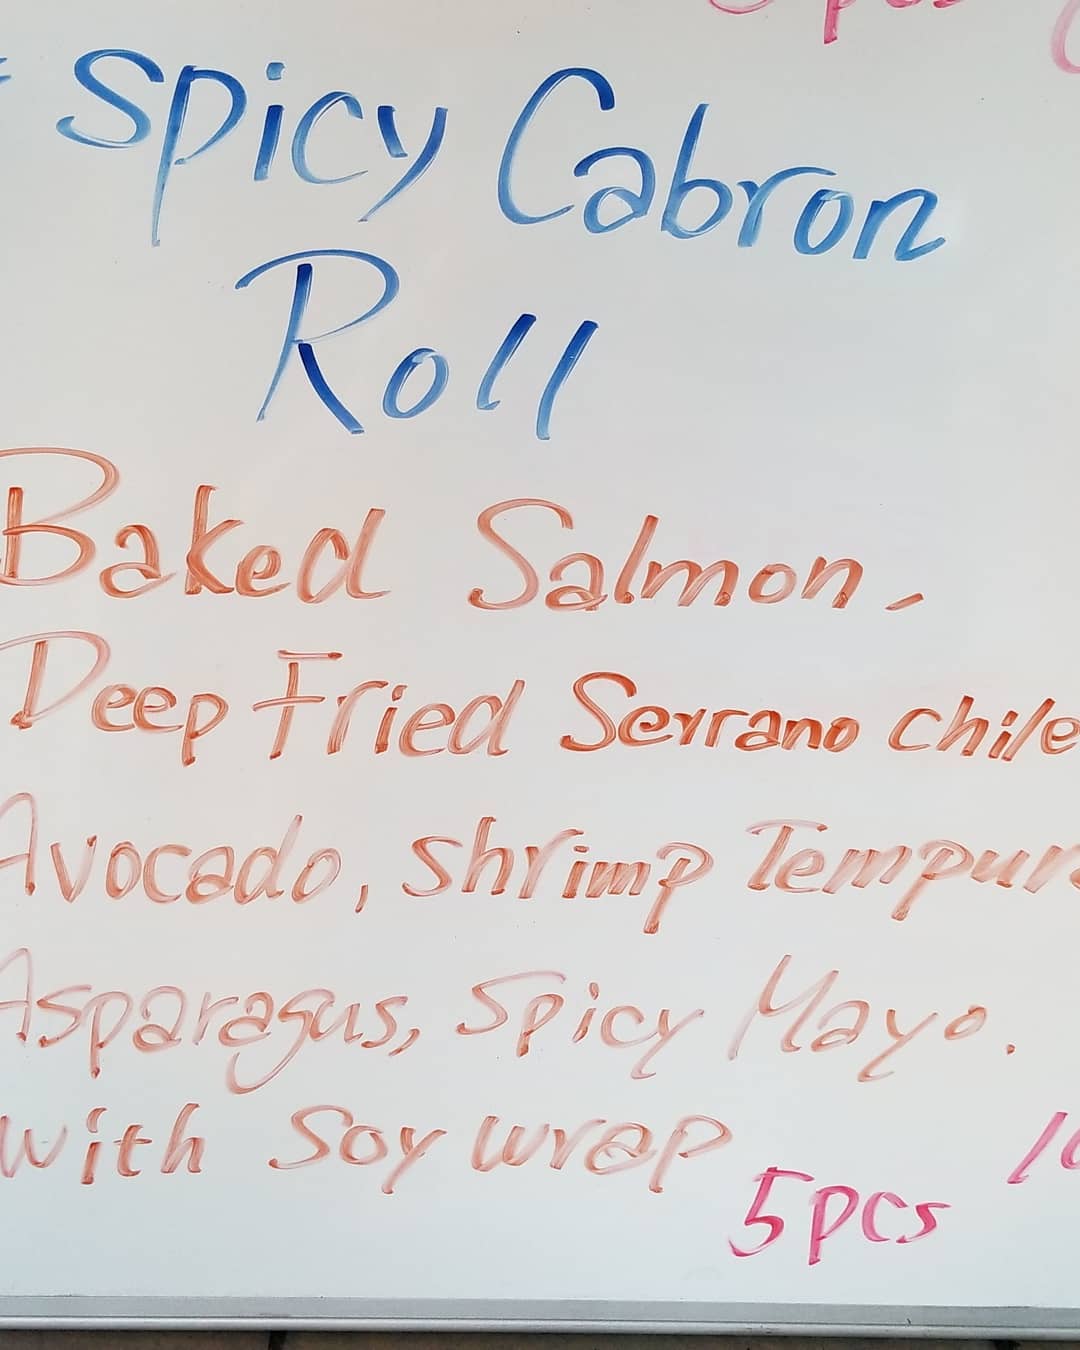 Spicy Cabron
Roll
Baked Salmon,
Deep Fried Serrano chile
Avocado, shrimp Tempura
Asparagus, Spicy Mayo.
with Soy wrap
5pcs